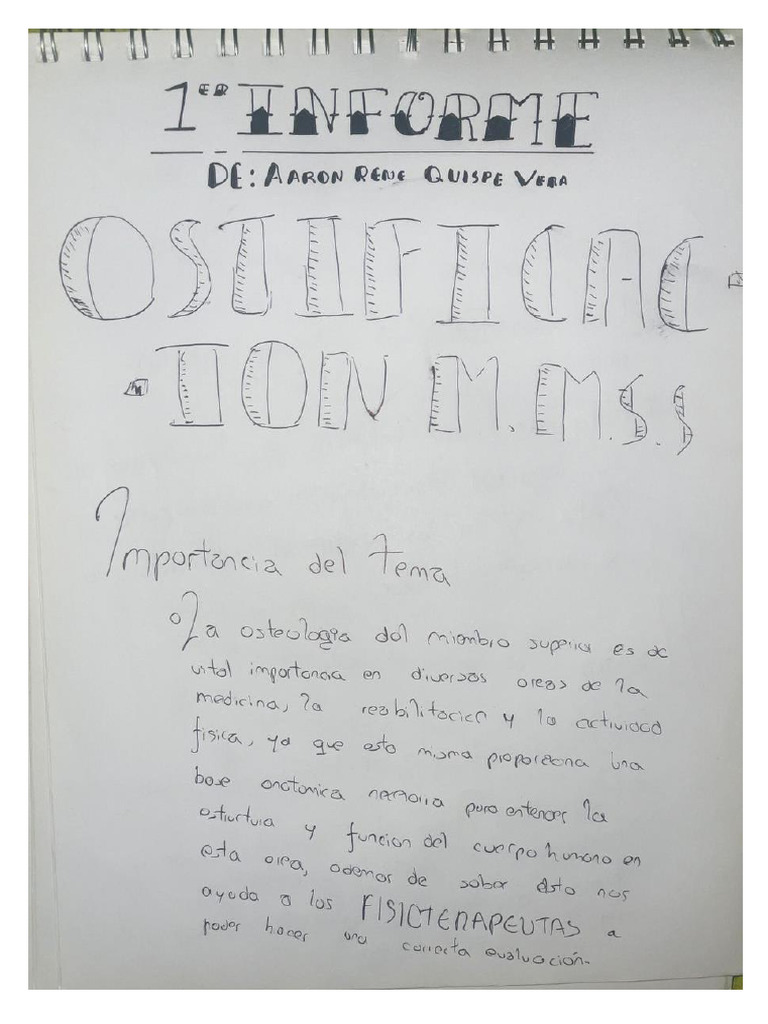 1er INFORME
DE: AARON RENE QUISPE VERA
OSTIFICAC
-ION M.M.S.S
Importancia del Tema
La osteologia del miembro superior es de
vital importancia en diversas areas de la
medicina, la reabilitacion y la actividad
fisica, ya que esta misma proporciona una
base anatomica para entender la
y funcion del cuerpo humano en
esta area, ademas de saber esto nos
ayuda a los FISIOTERAPEUTAS a
poder hacer una correcta evaluación.